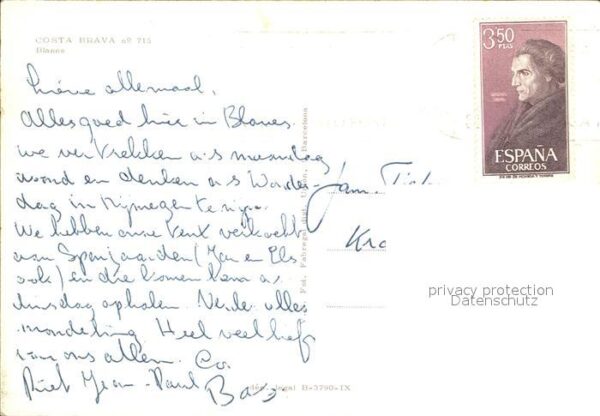 COSTA BRAVA nº 715
Blanes
Lieve allemaal,
Alles goed hier in Blanes.
We vertrekken a.s maandag
avond en denken a.s Donder-
dag in Nijmegen te zijn.
We hebben onze tent verkocht
aan Spanjaarden (Jan en Els
ook) en die komen hem a.s
dinsdag ophalen. Verder alles
mondeling. Heel veel liefs
van ons allen. Co
Piet Jean-Paul Bas
Fot. Fabregat dist. Unión, Barcelona
Dep. legal B-3790-IX
Fam.
3,50
PTAS
ESPAÑA
CORREOS
privacy protection
Datenschutz